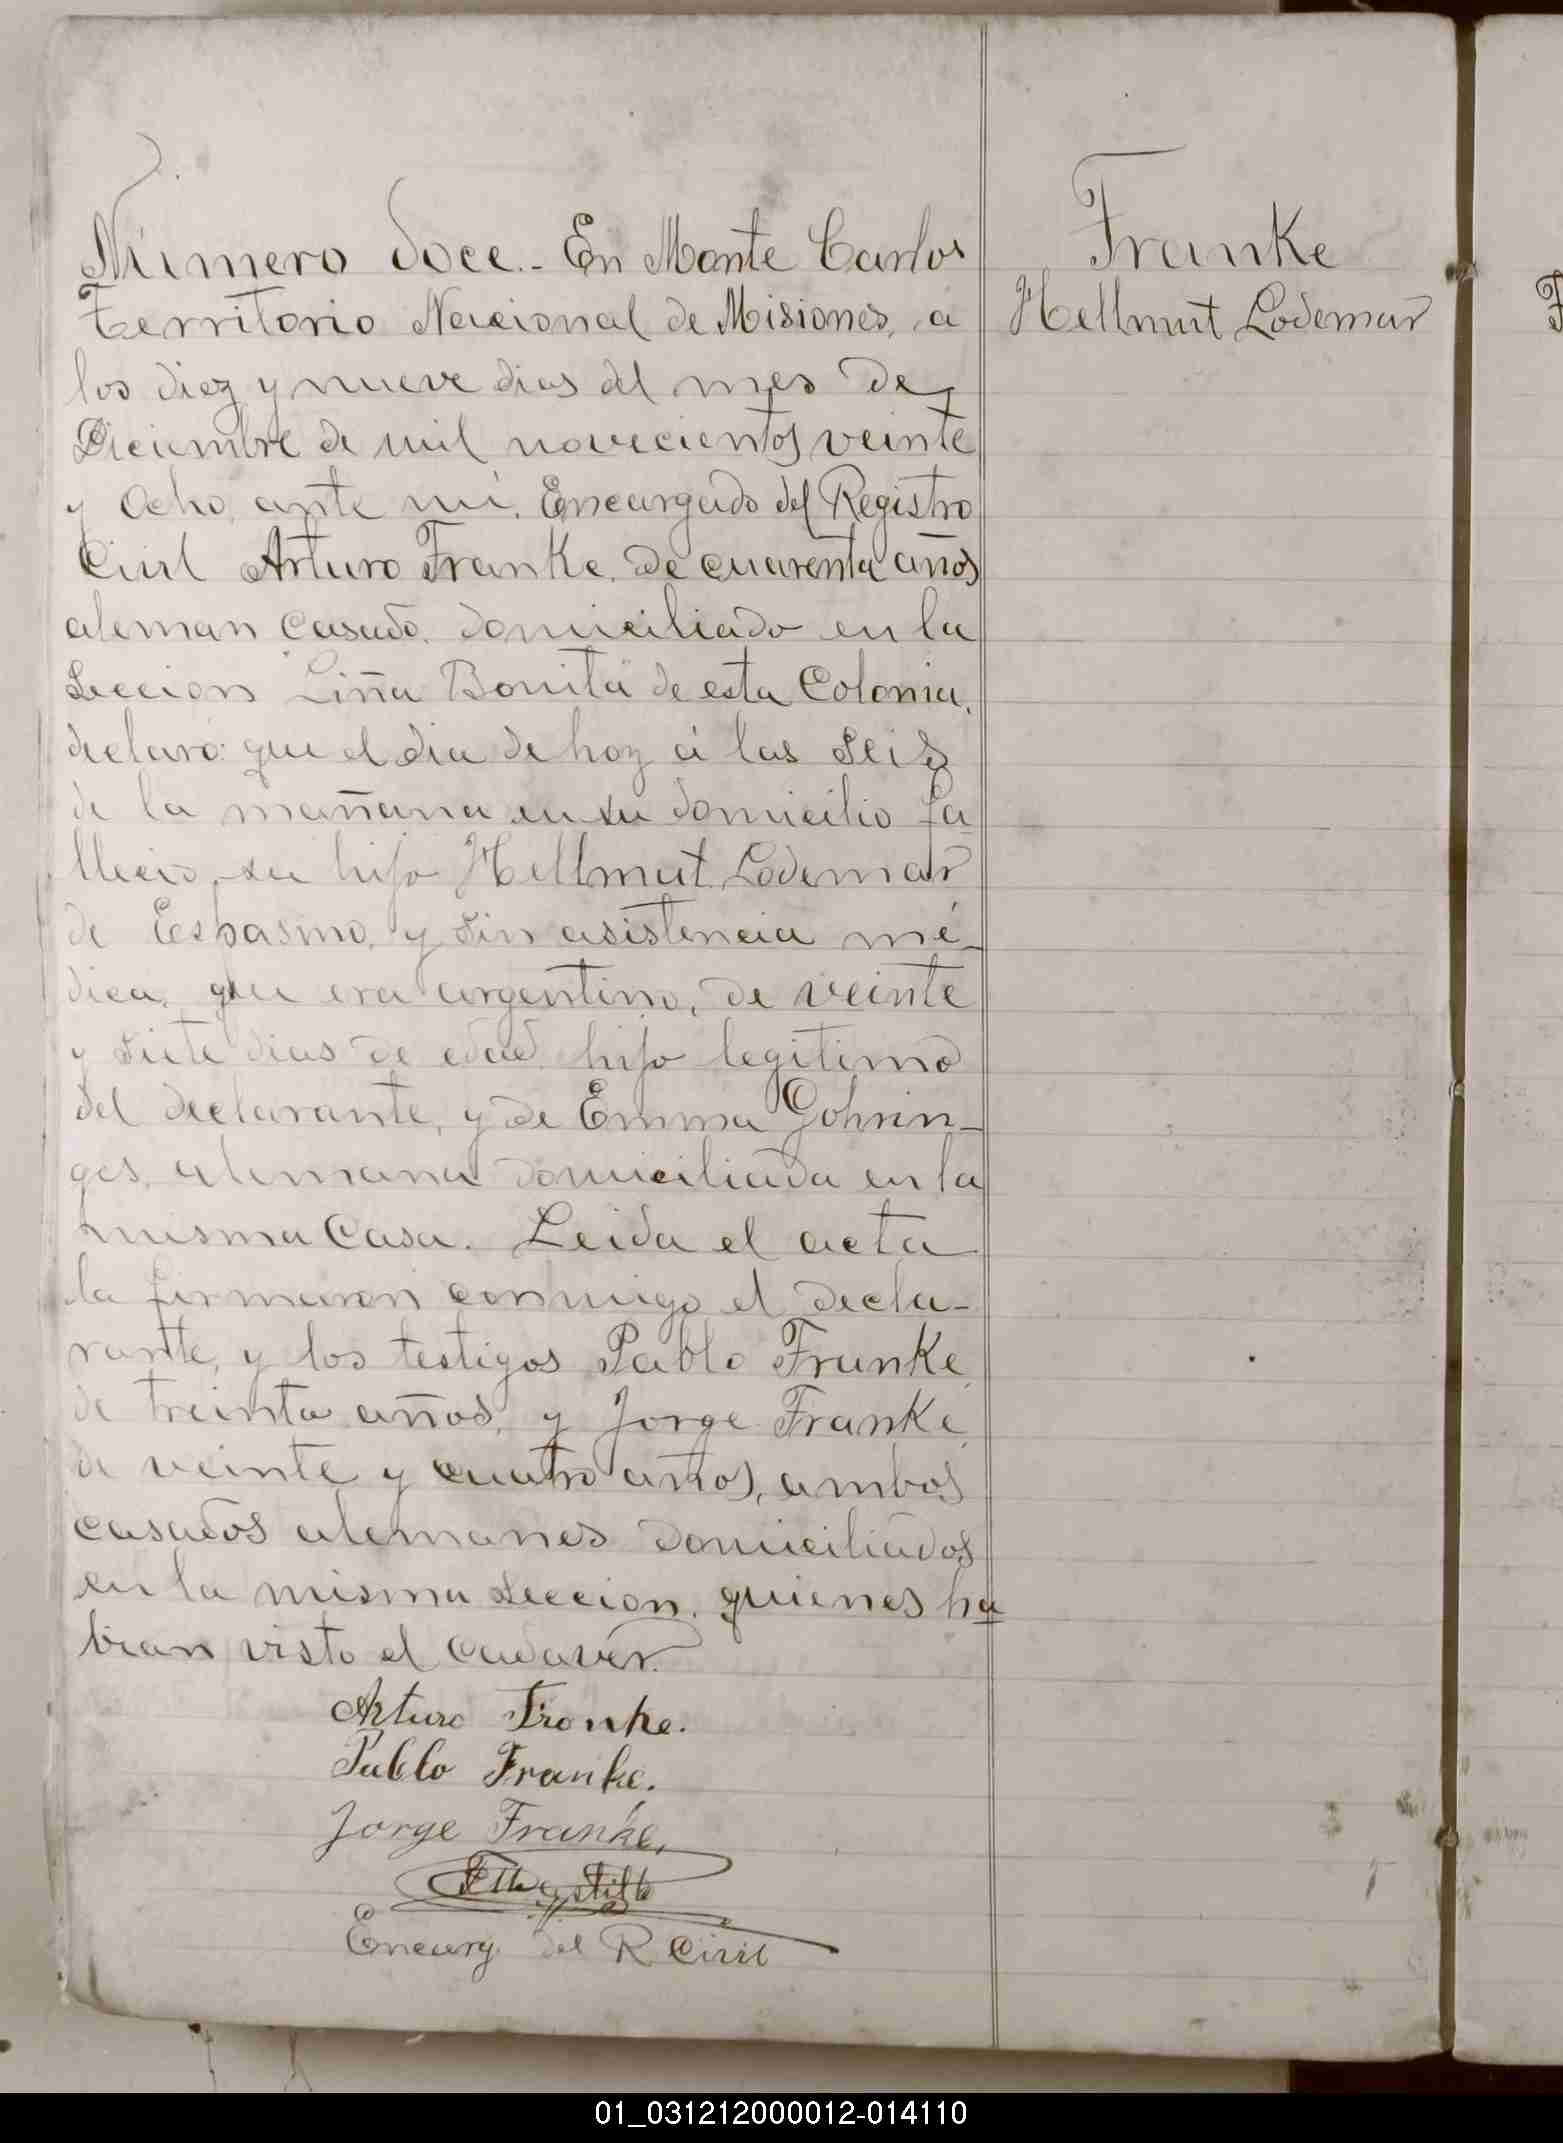 Número doce.- En Monte Carlos
Territorio Nacional de Misiones, a
los diez y nueve dias del mes de
Diciembre de mil novecientos veinte
y ocho, ante mi, Encargado del Registro
Civil Arturo Franke, de cuarenta años
aleman casado, domiciliado en la
Seccion Liña Bonita de esta Colonia,
declaró: que el dia de hoy á las seis
de la mañana en su domicilio fa-
llecio, su hijo Hellmut Lodemar
de Espasmo, y sin asistencia mé-
dica, que era argentino, de veinte
y siete dias de edad, hijo legitimo
del declarante, y de Emma Gohrin-
ges, alemana domiciliada en la
misma casa. Leida el acta
la firmaron conmigo el decla-
rante, y los testigos Pablo Franke,
de treinta años, y Jorge Franke,
de veinte y cuatro años, ambos
casados alemanes domiciliados
en la misma Seccion, quienes ha
bian visto el cadaver.
Arturo Franke.
Pablo Franke.
Jorge Franke,
Encarg. del R Civil
Franke
Hellmut Lodemar
01_031212000012-014110